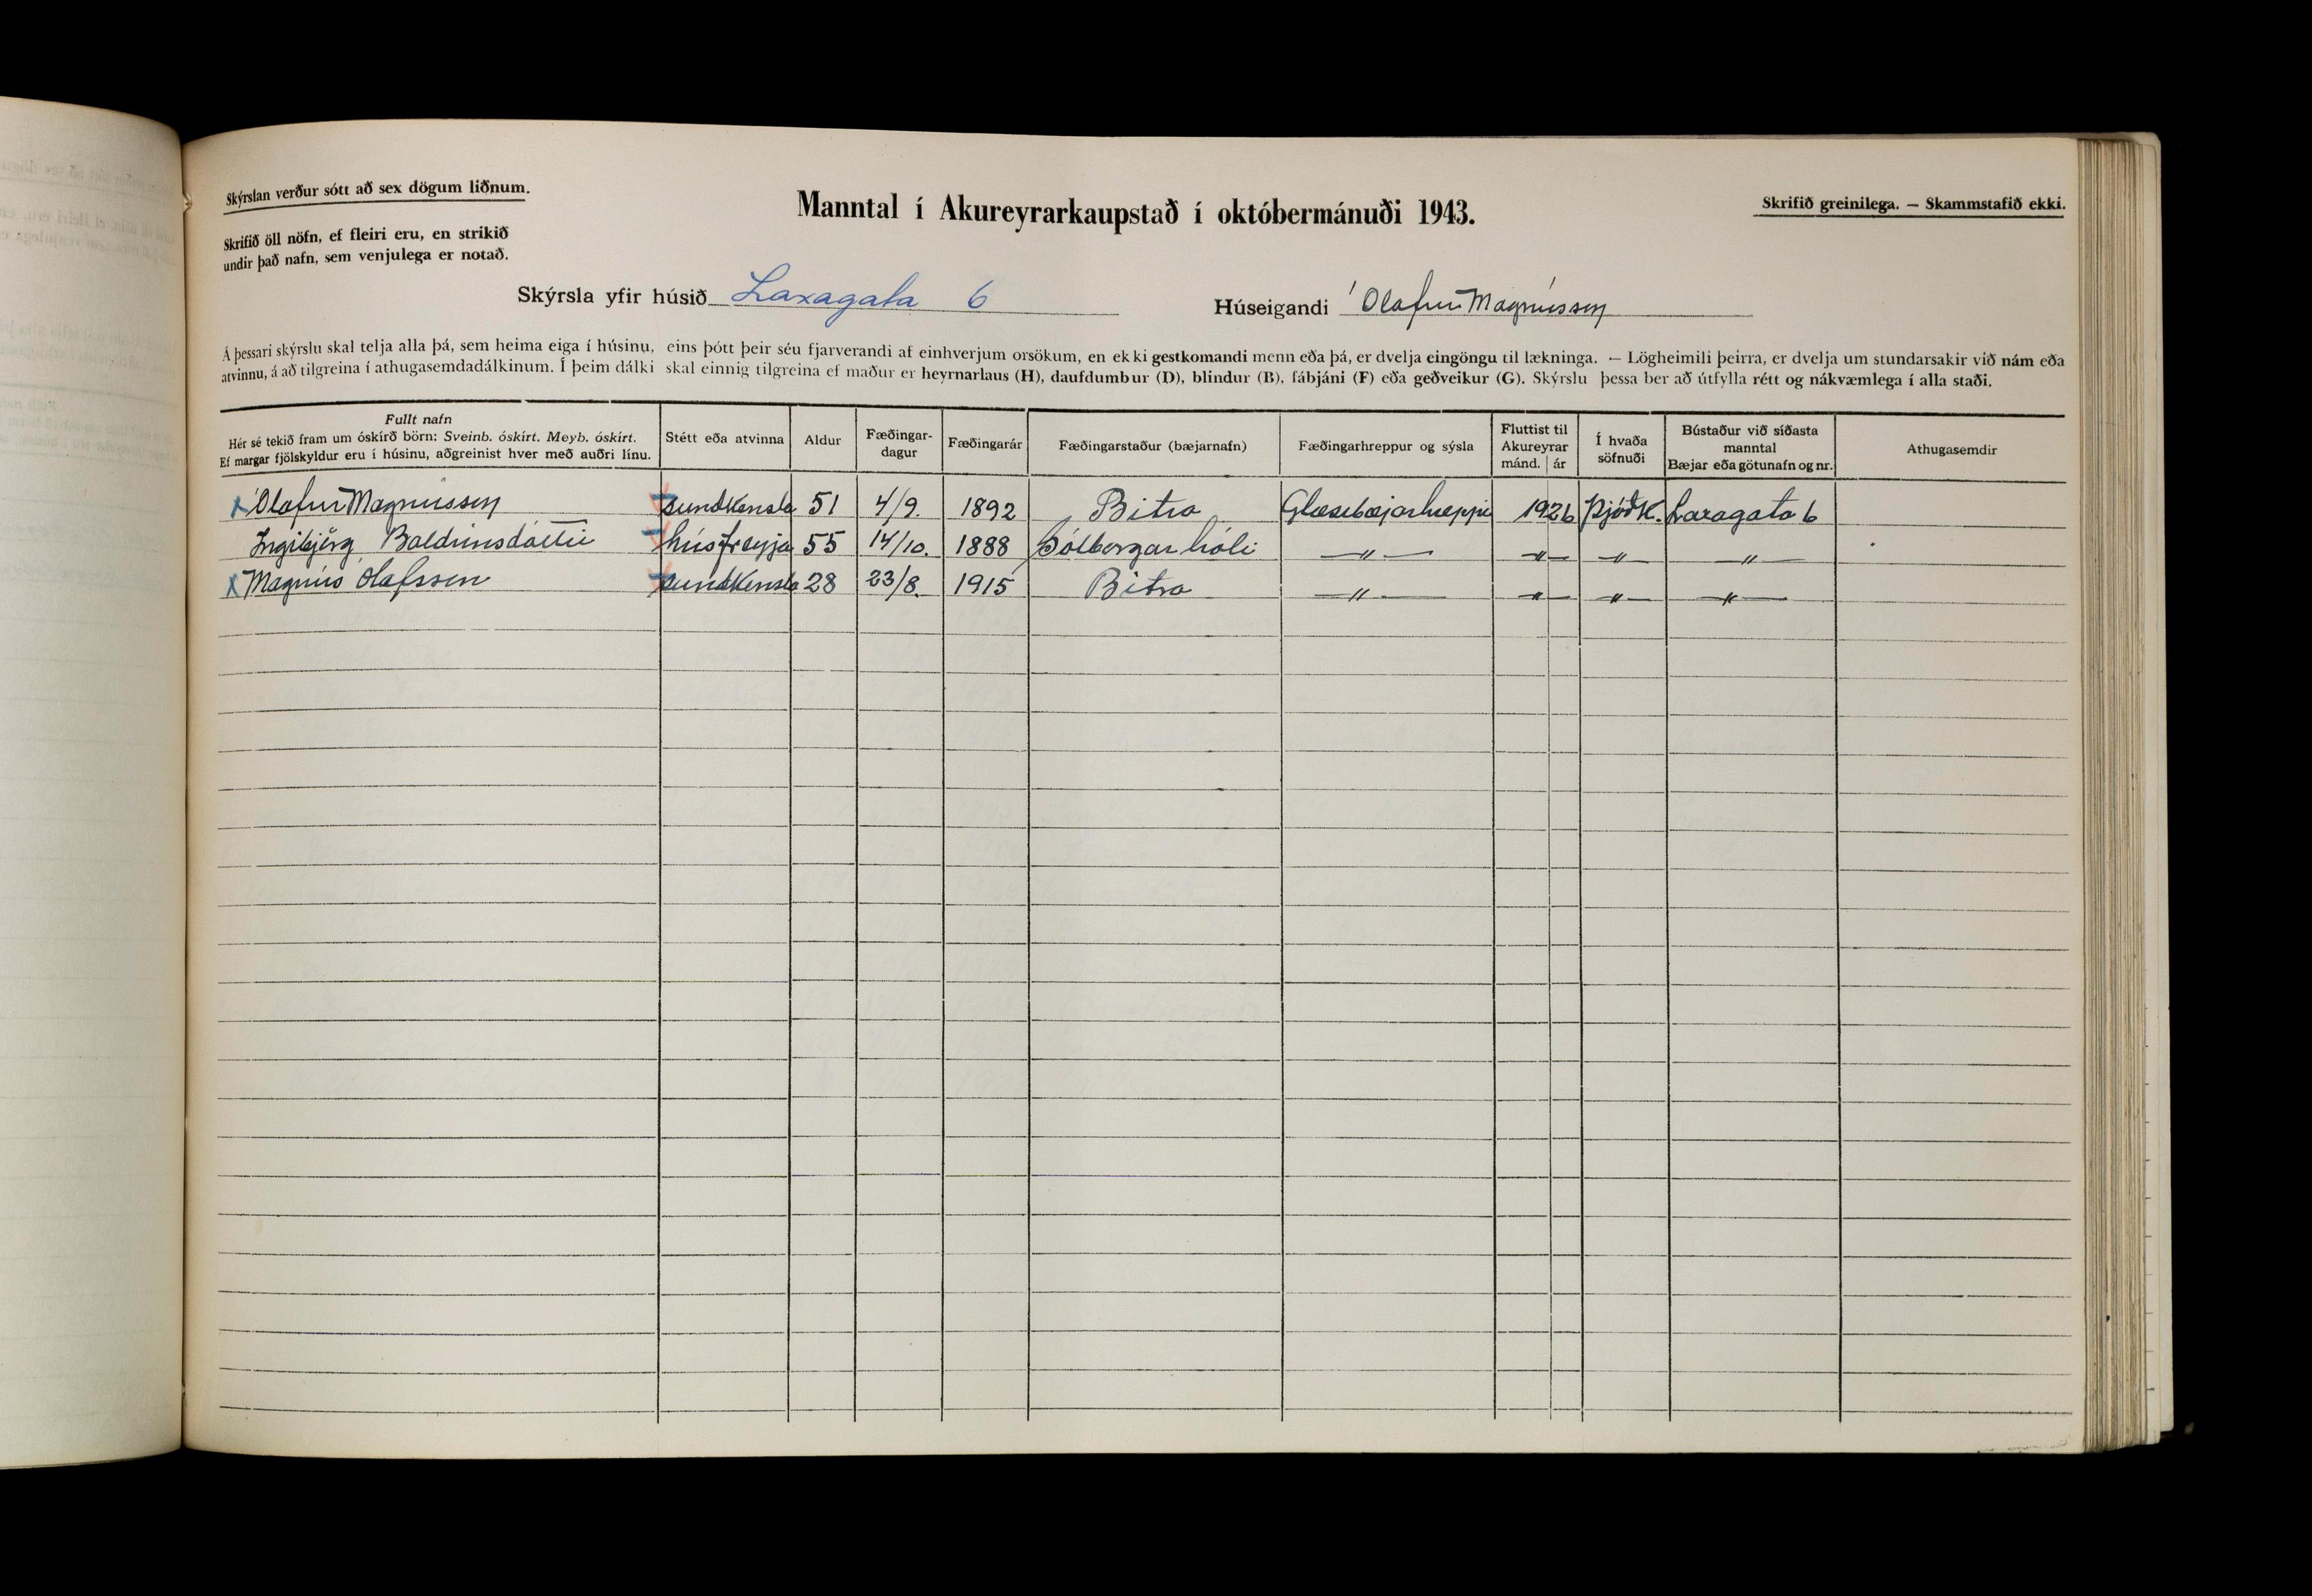 Skýrslan verður sótt að sex dögum liðnum.
Manntal í Akureyrarkaupstað í októbermánuði 1943.
Skrifið greinilega. — Skammstafið ekki.
Skrifið öll nöfn, ef fleiri eru, en strikið
undir það nafn, sem venjulega er notað.
Skýrsla yfir húsið Laxagata 6
Húseigandi Ólafur Magnússon
Á þessari skýrslu skal telja alla þá, sem heima eiga í húsinu, eins þótt þeir séu fjarverandi af einhverjum orsökum, en ekki gestkomandi menn eða þá, er dvelja eingöngu til lækninga. — Lögheimili þeirra, er dvelja um stundarsakir við nám eða
atvinnu, á að tilgreina í athugasemdadálkinum. Í þeim dálki skal einnig tilgreina ef maður er heyrnarlaus (H), daufdumbur (D), blindur (B), fábjáni (F) eða geðveikur (G). Skýrslu þessa ber að útfylla rétt og nákvæmlega í alla staði.
Fullt nafn
Hér sé tekið fram um óskírð börn: Sveinb. óskírt. Meyb. óskírt.
Ef margar fjölskyldur eru í húsinu, aðgreinist hver með auðri línu.
Stétt eða atvinna
Aldur
Fæðingar-
dagur
Fæðingarár
Fæðingarstaður (bæjarnafn)
Fæðingarhreppur og sýsla
Fluttist til
Akureyrar
mánd. ár
Í hvaða
söfnuði
Bústaður við síðasta
manntal
Bæjar eða götunafn og nr.
Athugasemdir
x Ólafur Magnússon sundkensla 51 4/9. 1892 Bitra Glæsibæjarhreppi 1926 Þjóðk. Laxagata 6
Ingibjörg Baldvinsdóttir húsfreyja 55 14/10. 1888 Sólborgarhóli —〃— —〃— —〃— —〃—
x Magnús Ólafsson sundkensla 28 23/8. 1915 Bitra —〃— —〃— —〃— —〃—